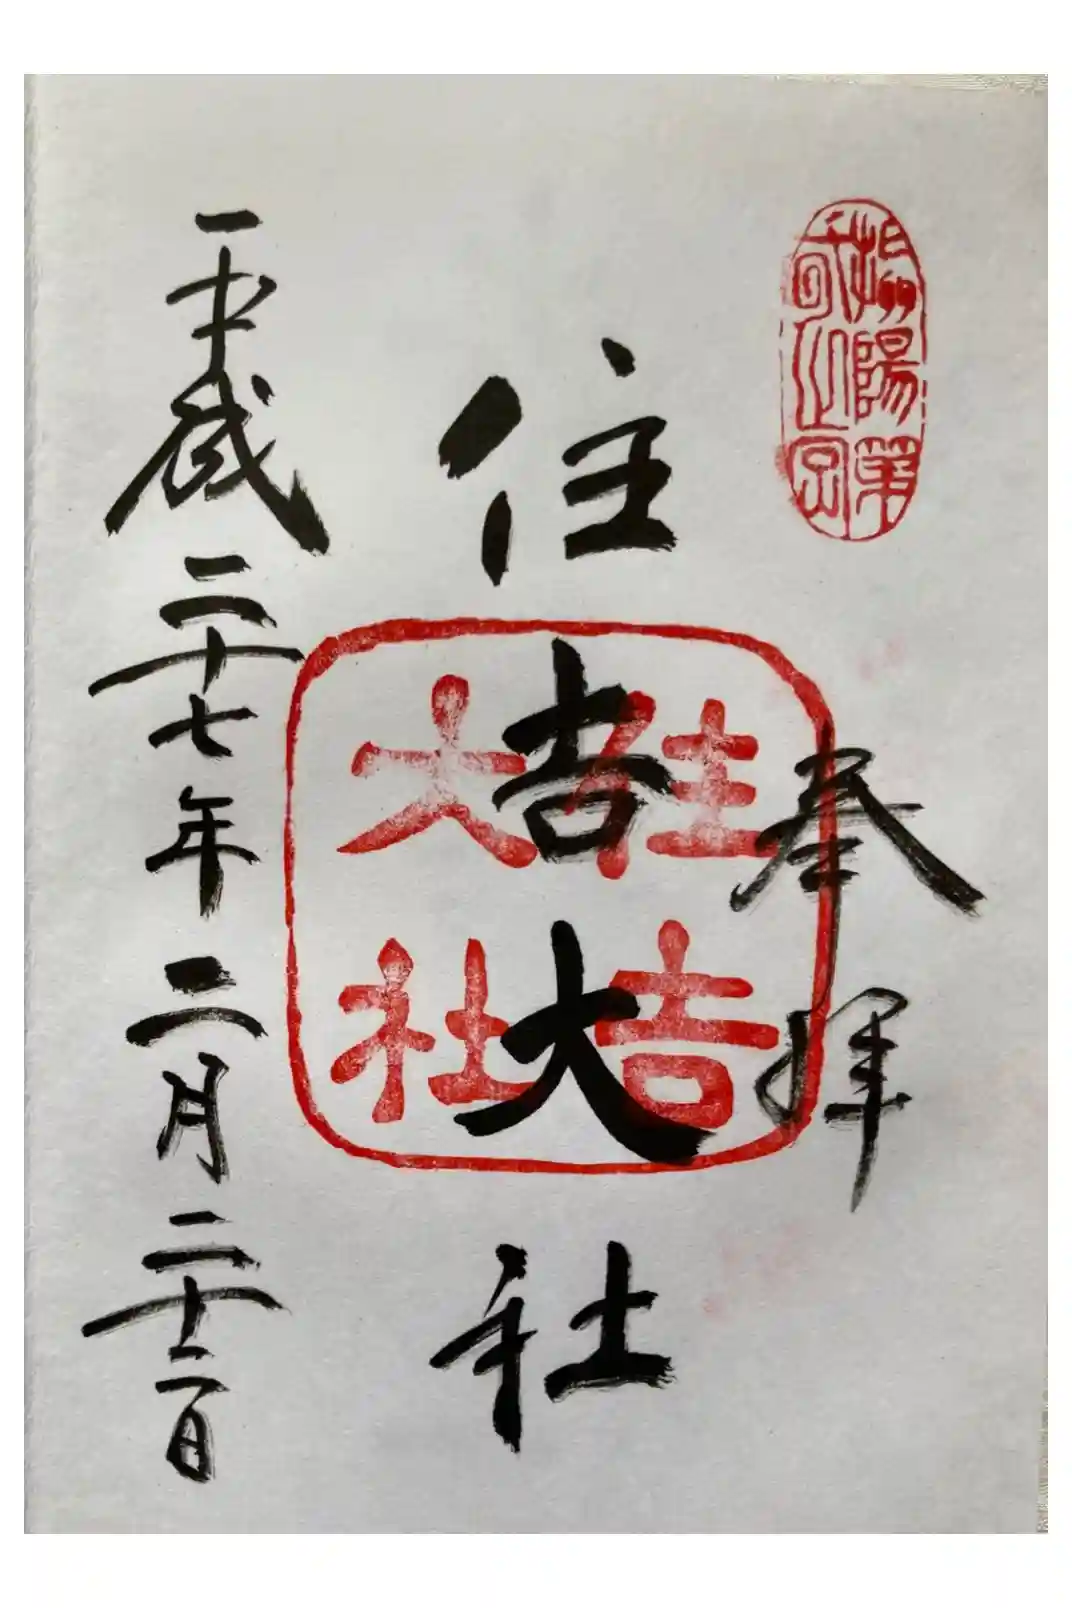 奉拝
住吉大社
住吉
大社
平成二十七年二月二十二日